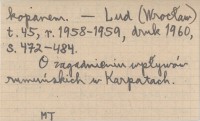 kopanem. — Lud (Wrocław)
t. 45, r. 1958-1959, druk 1960,
s. 472-484.
O zagadnieniu wpływów
rumuńskich w Karpatach.
MT